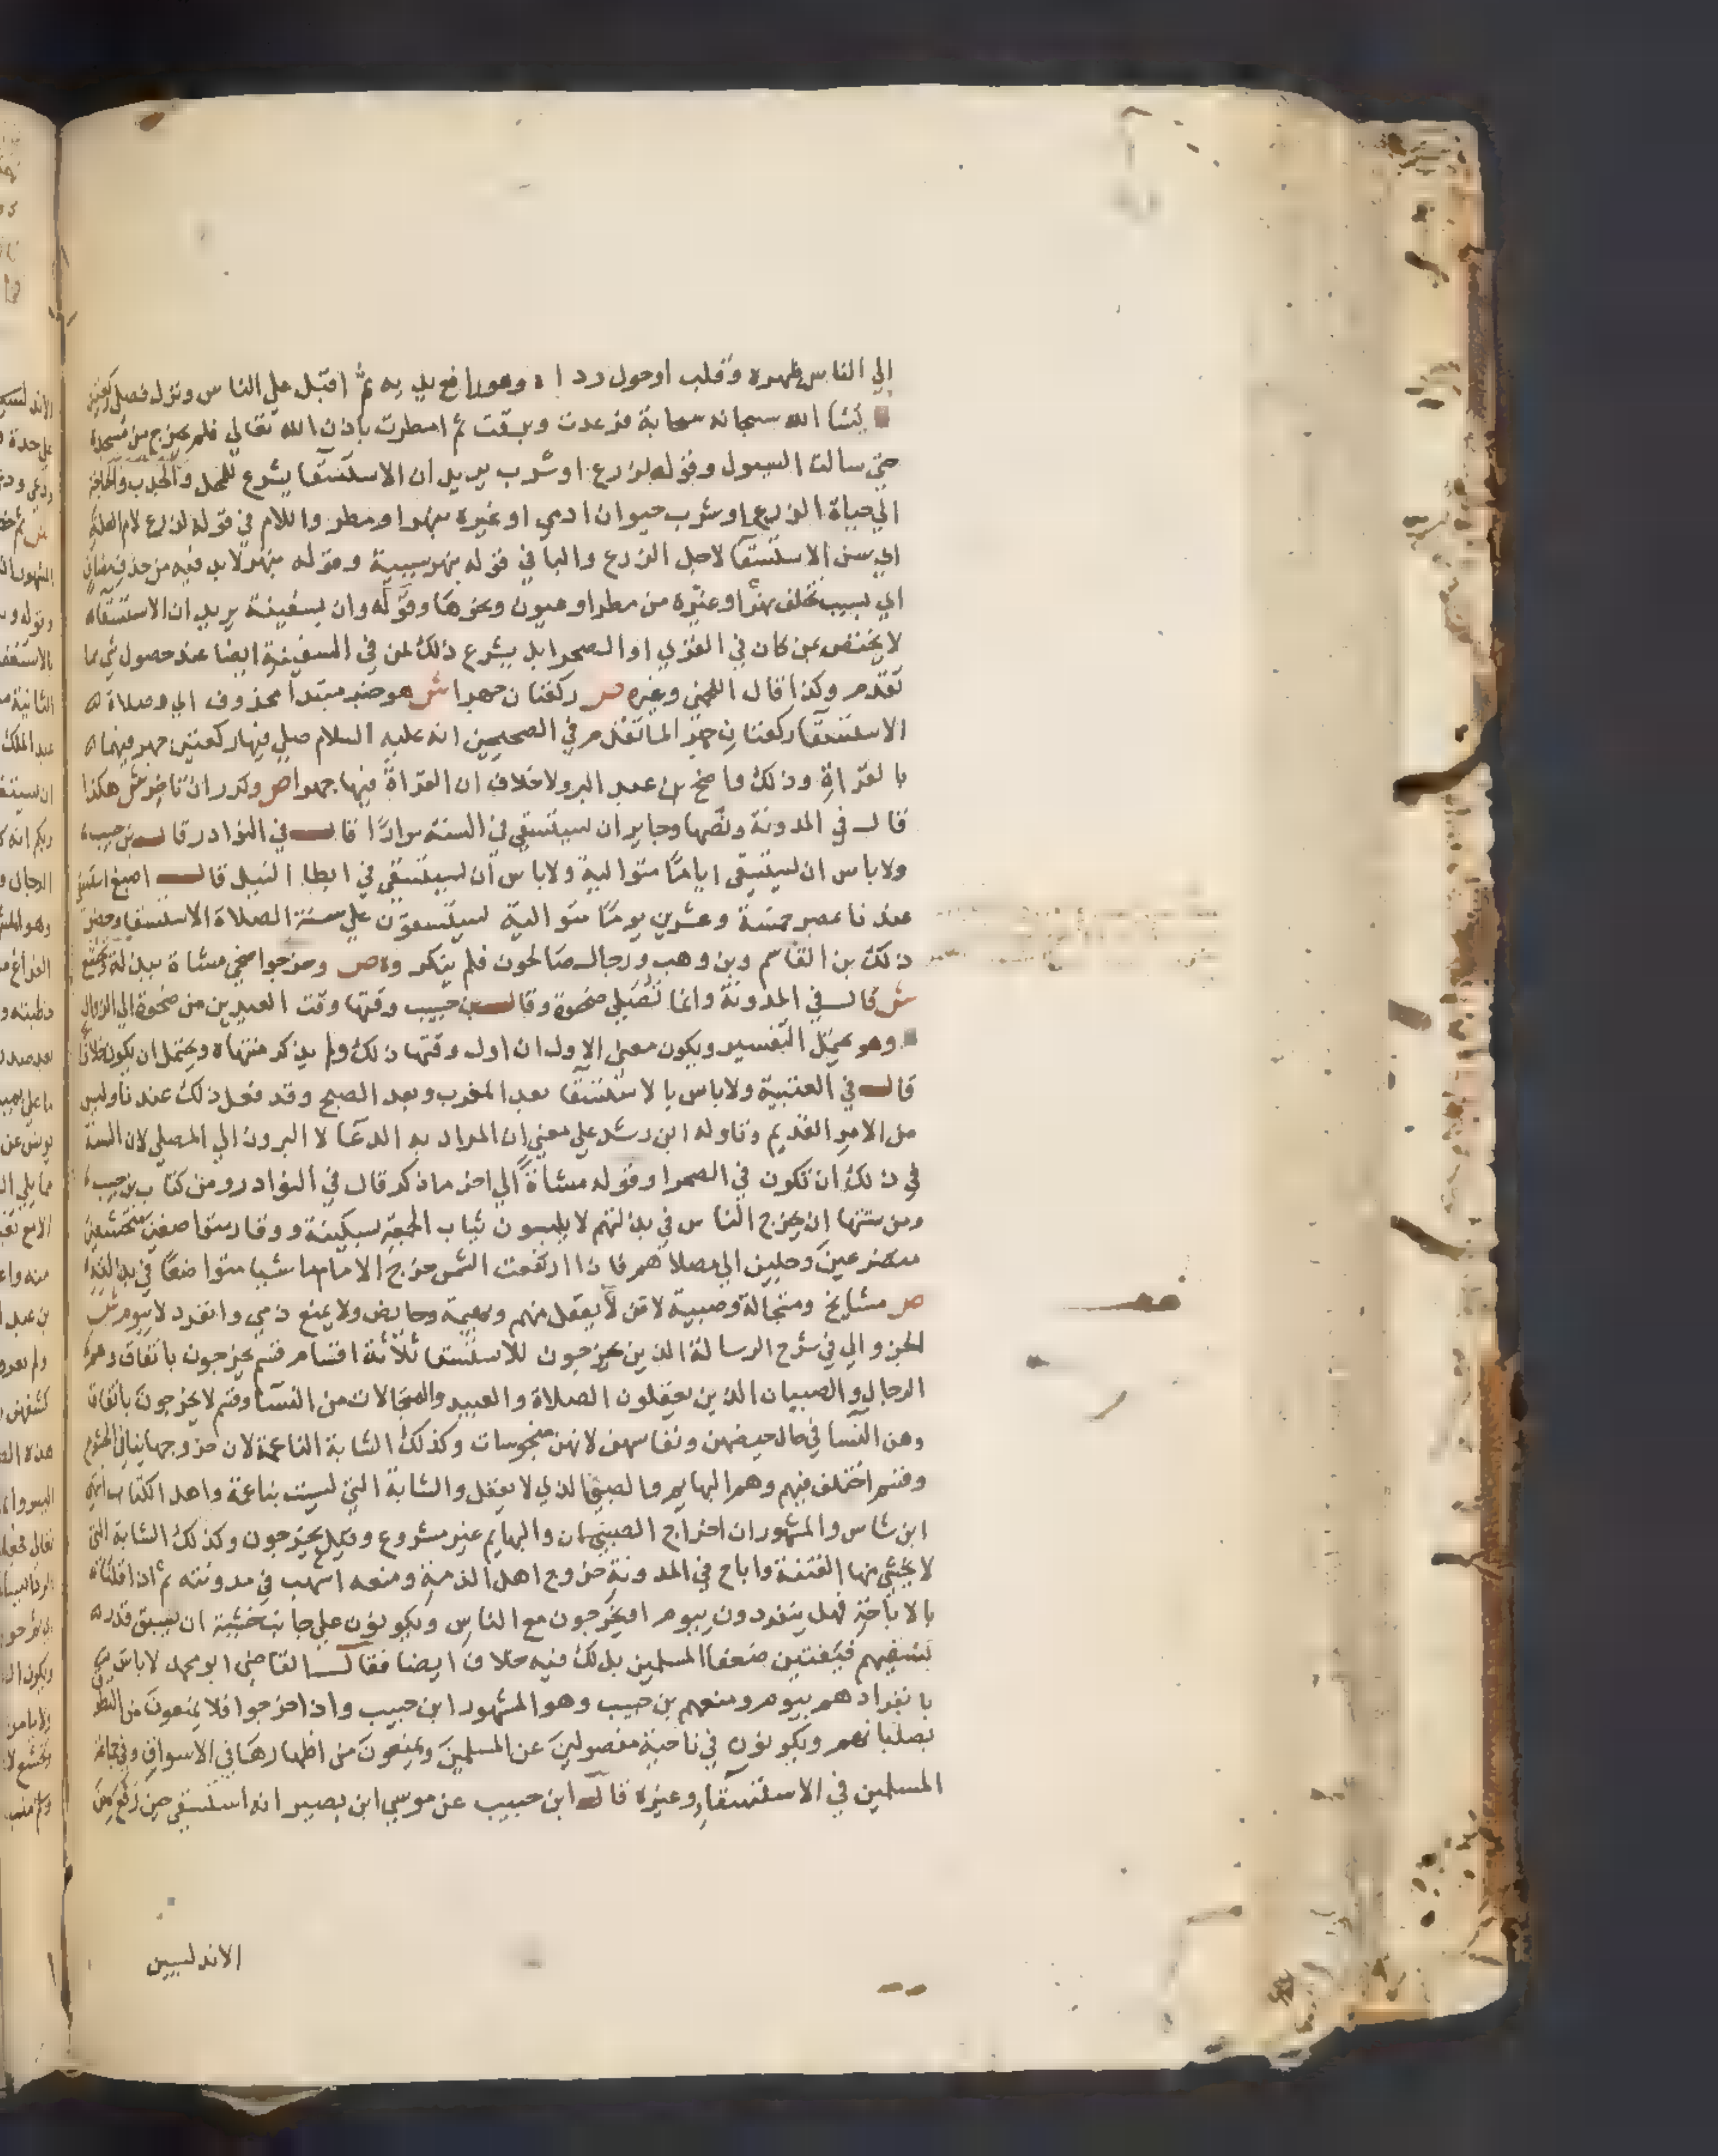 الي الناس ظهره وقلب اوحول رداه وهو رافع يديه ثم اقبل علي الناس ونزل فصلي ركعتين
نشا الله سبحانه سحابة فرعدت وبرقت ثم امطرت باذن الله تعالي فلم يخرج من مسجده
حتي سالت السيول وقوله لزرع اوشرب يريد ان الاستسقا يشرع للمحل والجدب والحاجة
الي حياة الزرع اوشرب حيوان ادمي اوغيره بنهر اومطر واللام في قوله لزرع لام العلة
اي سن الاستسقا لاجل الزرع والبا في قوله بنهر سببية وقوله بنهر لابد فيه من حذف مضاف
اي بسبب تخلف نهر اوغيره من مطر اوعيون ونحوها وقوله وان بسفينة يريد ان الاستسقاه
لا يختص بمن كان في القري اوالصحرا بل يشرع ذلك لمن في السفينة ايضا عند حصول شي مما
تقدم وكذا قال اللخمي وغيره ص ركعتان جهرا ش هو خبر مبتدا محذوف اي وصلاة
الاستسقا ركعتان جهرا لما تقدم في الصحيحين انه عليه السلام صلي فيها ركعتين جهر فيهما
بالقراة وذلك واضح بن عبد البر ولا خلاف ان القراة فيها جهرا ص وكرر ان تاخر ش هكذا
قال في المدونة ونصها وجايز ان يستسقي في السنة مرارا قال في النوادر قال بن حبيب
ولاباس ان يستسقي اياما متوالية ولاباس ان يستسقي في ابطا النيل قال اصبغ استسقي
عندنا بمصر خمسة وعشرين يوما متوالية يستسقون علي سنة الصلاة الاستسقا وحضر
ذلك بن القاسم وبن وهب ورجال صالحون فلم ينكروه ص وخرجوا ضحي مشاة ببذلة وتخشع
ش قال في المدونة وانما تصلي ضحوة وقال بن حبيب وقتها وقت العيدين من ضحوة الي الزوال
وهو يحتمل التفسير ويكون معني الاول ان اول وقتها ذلك ولم يذكر منتهاه ويحتمل ان يكون خلافا
قال في العتبية ولاباس بالاستسقا بعد المغرب وبعد الصبح وقد فعل ذلك عندنا وليس
من الامر القديم وتاوله ابن رشد علي معني ان المراد به الدعا لا البروز الي المصلي لان السنة
في ذلك ان تكون في الصحرا وقوله مشاة الي اخر ماذكر قال في النوادر ومن كتاب بن حبيب
ومن سنتها ان يخرج الناس في بذلتهم لايلبسون ثياب الجمعة بسكينة ووقار متواضعين متخشعين
متضرعين وجلين الي مصلاهم فاذا ارتفعت الشمس خرج الامام ماشيا متواضعا في بذلته
ص مشايخ ومتجالة وصبية لامن لايعقل منهم وبهيمة وحايض ولايمنع ذمي وانفرد لابيوم ش
الجزوالي في شرح الرسالة الذين يخرجون للاستسقا ثلاثة اقسام قسم يخرجون باتفاق وهم
الرجال والصبيان الذين يعقلون الصلاة والعبيد والمتجالات من النسا وقسم لايخرجون باتفاق
وهن النسا في حال حيضهن ونفاسهن لانهن منجوسات وكذلك الشابة الناعمة لان خروجها ينافي الخشوع
وقسم اختلف فيهم وهم البهايم والصبي الذي لايعقل والشابة التي ليست بناعمة واهل الكتاب انتهي
ابن شاس والمشهور ان اخراج الصبيان والبهايم غير مشروع وقيل يخرجون وكذلك الشابة التي
لايخشي منها الفتنة واباح في المدونة خروج اهل الذمة ومنعه اشهب في مدونته ثم اذا قلنا
بالاباحة فهل ينفردون بيوم اويخرجون مع الناس ويكونون علي جانب خشية ان يسبق قدره
بسقيهم فيفتتن ضعفا المسلمين بذلك فيه خلاف ايضا فقال القاضي ابومحمد لاباس
بانفرادهم بيوم ومنعهم بن حبيب وهو المشهور ابن حبيب واذا خرجوا فلايمنعون من التطوف
بصلبانهم ويكونون في ناحية مفصولين عن المسلمين ويمنعون من اظهارها في الاسواق وفي جماعة
المسلمين في الاستسقا وغيره قال ابن حبيب عن موسي ابن نصير انه استسقي حين رجع من
الاندلسيين